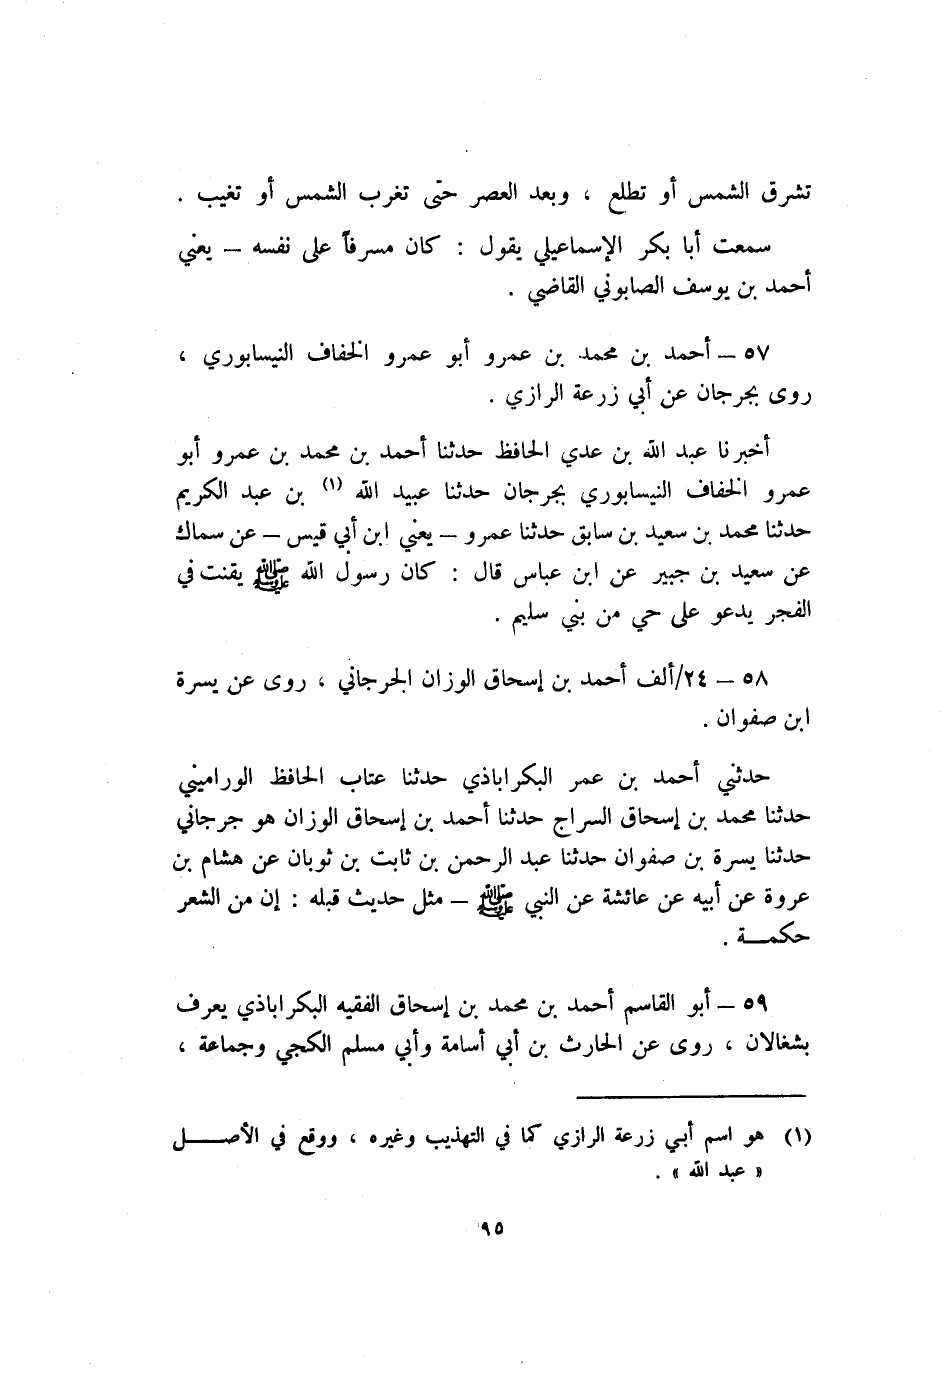 تشرق الشمس أو تطلع ، وبعد العصر حتّى تغرب الشمس أو تغيب .
سمعت أبا بكر الإسماعيلي يقول : كان مسرفاً على نفسه – يعني
أحمد بن يوسف الصابوني القاضي .
٥٧ – أحمد بن محمد بن عمرو أبو عمرو الخفاف النيسابوري ،
روى بجرجان عن أبي زرعة الرازي .
أخبرنا عبد الله بن عدي الحافظ حدثنا أحمد بن محمد بن عمرو أبو
عمرو الخفاف النيسابوري بجرجان حدثنا عبيد الله (١) بن عبد الكريم
حدثنا محمد بن سعيد بن سابق حدثنا عمرو – يعني ابن أبي قيس – عن سماك
عن سعيد بن جبير عن ابن عباس قال : كان رسول الله ﷺ يقنت في
الفجر يدعو على حي من بني سليم .
٥٨ – ٢٤/ألف أحمد بن إسحاق الوزان الجرجاني ، روى عن يسرة
ابن صفوان .
حدثني أحمد بن عمر البكراباذي حدثنا عتاب الحافظ الوراميني
حدثنا محمد بن إسحاق السراج حدثنا أحمد بن إسحاق الوزان هو جرجاني
حدثنا يسرة بن صفوان حدثنا عبد الرحمن بن ثابت بن ثوبان عن هشام بن
عروة عن أبيه عن عائشة عن النبي ﷺ – مثل حديث قبله : إن من الشعر
حكمـــة .
٥٩ – أبو القاسم أحمد بن محمد بن إسحاق الفقيه البكراباذي يعرف
بشغالان ، روى عن الحارث بن أبي أسامة وأبي مسلم الكجي وجماعة ،
(١) هو اسم أبي زرعة الرازي كما في التهذيب وغيره ، ووقع في الأصـــل
« عبد الله » .
٩٥